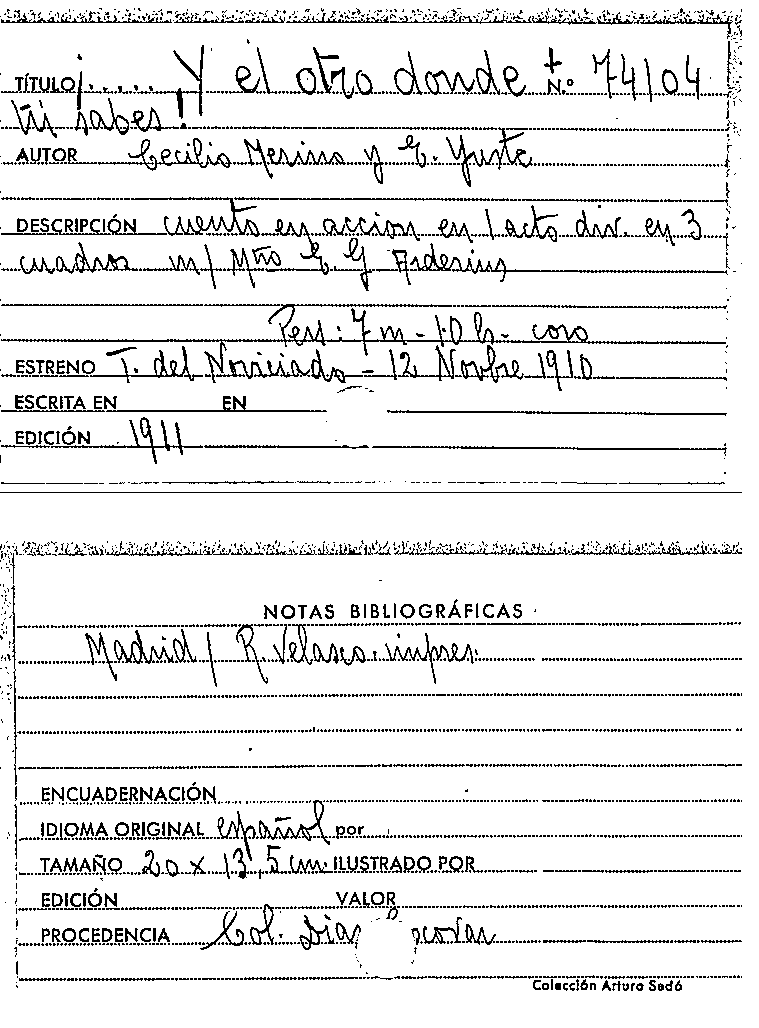 TÍTULO ¡..... Y el otro donde + N.º 74104
tú sabes!!
AUTOR Cecilio Merino y E. Yuste
DESCRIPCIÓN cuento en accion en 1 acto div. en 3
cuadros m/ Mtro E. G Arderius
Pers: 7 m - 10 h - coro
ESTRENO T. del Noviciado - 12 Novbre 1910
ESCRITA EN EN
EDICIÓN 1911
NOTAS BIBLIOGRÁFICAS
Madrid / R. Velasco. impres.
ENCUADERNACIÓN
IDIOMA ORIGINAL español por
TAMAÑO 20 x 13,5 cm. ILUSTRADO POR
EDICIÓN VALOR
PROCEDENCIA Col.
Colección Arturo Sedó